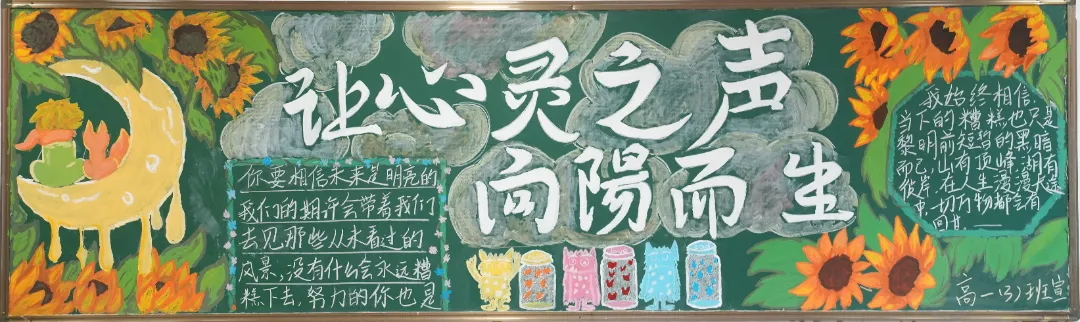 让心灵之声
向陽而生
你要相信未来是明亮的
我们的期许会带着我们
去见那些从未看过的
风景,没有什么会永远糟
糕下去,努力的你也是
我始终相信,
当下的糟糕也只是
黎明前短暂的黑暗
而已,山有顶峰,湖有
彼岸,在人生漫漫长途
中,一切万物都会有
回甘。——
高一(3)班宣